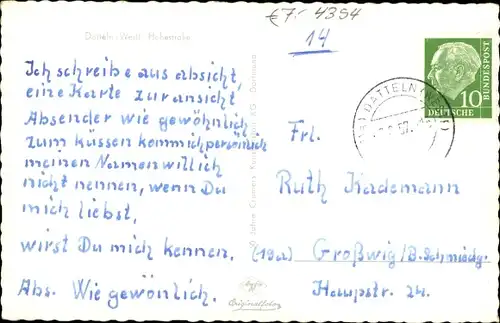 €7,- 4394
14
Datteln i. Westf. Hohemarke
Ich schreibe aus absicht,
eine Karte zur ansicht
Absender wie gewöhnlich
zum küssen komm ich persönlich
meinen Namen will ich
nicht nennen, wenn Du
mich liebst,
wirst Du mich kennen.
Abs. Wie gewönlich.
Cramers Dortmund
Agfa
Originalfoto
DATTELN
10
DEUTSCHE
BUNDESPOST
Frl.
Ruth Kademann
(19a) Großwig/B. Schmiedbg.
Haupstr. 24.